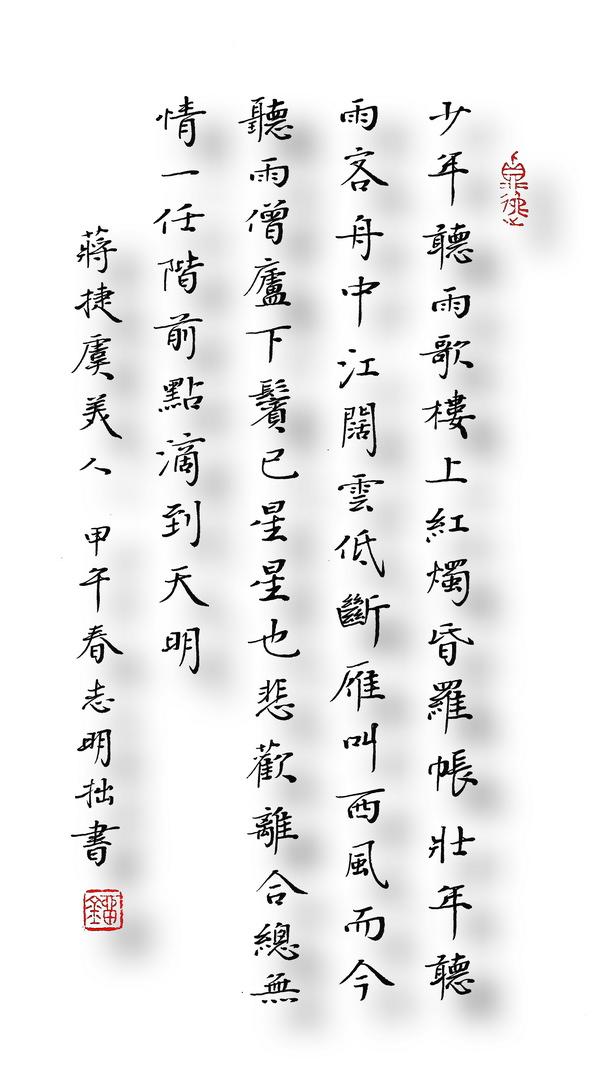 少年聽雨歌樓上紅燭昏羅帳壯年聽
雨客舟中江闊雲低斷雁叫西風而今
聽雨僧廬下鬢已星星也悲歡離合總無
情一任階前點滴到天明
蔣捷虞美人 甲午春志明拙書